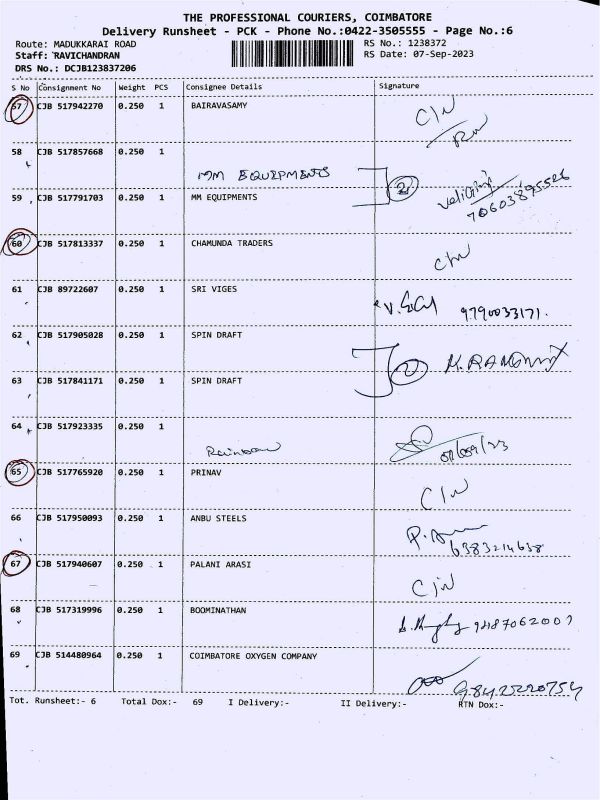 THE PROFESSIONAL COURIERS, COIMBATORE
Delivery Runsheet - PCK - Phone No.:0422-3505555 - Page No.:6
Route: MADUKKARAI ROAD RS No.: 1238372
Staff: RAVICHANDRAN RS Date: 07-Sep-2023
DRS No.: DCJB123837206
S No Consignment No Weight PCS Consignee Details Signature
57 CJB 517942270 0.250 1 BAIRAVASAMY C/N
58 CJB 517857668 0.250 1
MM EQUIPMENTS 2
59 CJB 517791703 0.250 1 MM EQUIPMENTS
60 CJB 517813337 0.250 1 CHAMUNDA TRADERS C/N
61 CJB 89722607 0.250 1 SRI VIGES 9790033171.
62 CJB 517905028 0.250 1 SPIN DRAFT 2
63 CJB 517841171 0.250 1 SPIN DRAFT
64 CJB 517923335 0.250 1
Rainbow
65 CJB 517765920 0.250 1 PRINAV C/N
66 CJB 517950093 0.250 1 ANBU STEELS
6383214638
67 CJB 517940607 0.250 1 PALANI ARASI C/N
68 CJB 517319996 0.250 1 BOOMINATHAN
69 CJB 514480964 0.250 1 COIMBATORE OXYGEN COMPANY
Tot. Runsheet:- 6 Total Dox:- 69 I Delivery:- II Delivery:- RTN Dox:-